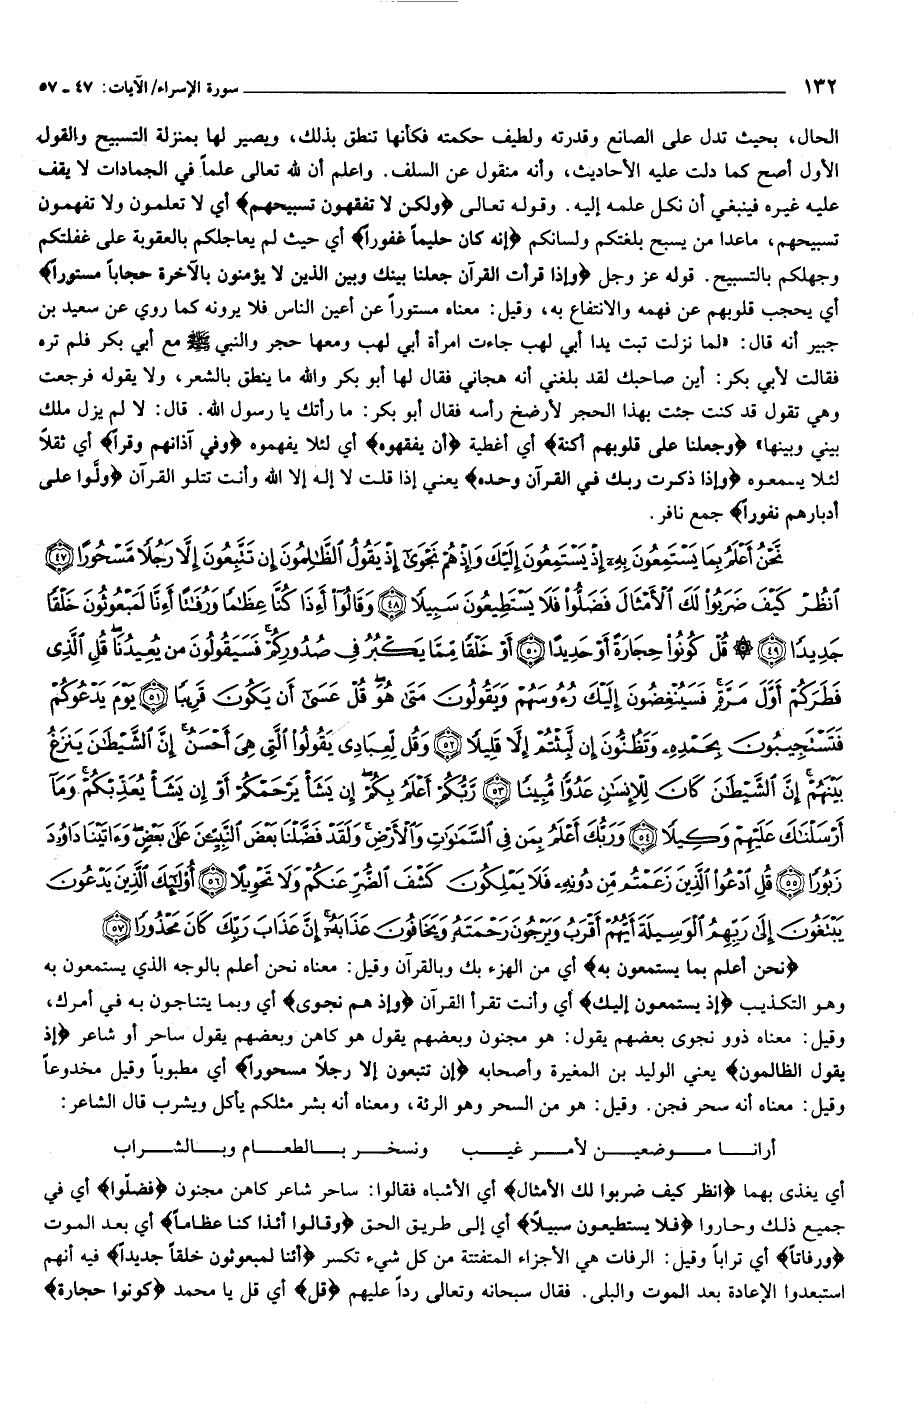 ١٣٢ سورة الإسراء/ الآيات: ٤٧ - ٥٧
الحال، بحيث تدل على الصانع وقدرته ولطيف حكمته فكأنها تنطق بذلك، ويصير لها بمنزلة التسبيح والقول
الأول أصح كما دلت عليه الأحاديث، وأنه منقول عن السلف. واعلم أن لله تعالى علماً في الجمادات لا يقف
عليه غيره فينبغي أن نكل علمه إليه. وقوله تعالى ﴿ولكن لا تفقهون تسبيحهم﴾ أي لا تعلمون ولا تفهمون
تسبيحهم، ماعدا من يسبح بلغتكم ولسانكم ﴿إنه كان حليماً غفوراً﴾ أي حيث لم يعاجلكم بالعقوبة على غفلتكم
وجهلكم بالتسبيح. قوله عز وجل ﴿وإذا قرأت القرآن جعلنا بينك وبين الذين لا يؤمنون بالآخرة حجاباً مستوراً﴾
أي يحجب قلوبهم عن فهمه والانتفاع به، وقيل: معناه مستوراً عن أعين الناس فلا يرونه كما روي عن سعيد بن
جبير أنه قال: «لما نزلت تبت يدا أبي لهب جاءت امرأة أبي لهب ومعها حجر والنبي ﷺ مع أبي بكر فلم تره
فقالت لأبي بكر: أين صاحبك لقد بلغني أنه هجاني فقال لها أبو بكر والله ما ينطق بالشعر، ولا يقوله فرجعت
وهي تقول قد كنت جئت بهذا الحجر لأرضخ رأسه فقال أبو بكر: ما رأتك يا رسول الله. قال: لا لم يزل ملك
بيني وبينها» ﴿وجعلنا على قلوبهم أكنة﴾ أي أغطية ﴿أن يفقهوه﴾ أي لئلا يفهموه ﴿وفي آذانهم وقراً﴾ أي ثقلاً
لئلا يسمعوه ﴿وإذا ذكرت ربك في القرآن وحده﴾ يعني إذا قلت لا إله إلا الله وأنت تتلو القرآن ﴿ولَّوا على
أدبارهم نفوراً﴾ جمع نافر.
نَّحْنُ أَعْلَمُ بِمَا يَسْتَمِعُونَ بِهِۦٓ إِذْ يَسْتَمِعُونَ إِلَيْكَ وَإِذْ هُمْ نَجْوَىٰٓ إِذْ يَقُولُ ٱلظَّٰلِمُونَ إِن تَتَّبِعُونَ إِلَّا رَجُلًا مَّسْحُورًا ﴿٤٧﴾
ٱنظُرْ كَيْفَ ضَرَبُوا۟ لَكَ ٱلْأَمْثَالَ فَضَلُّوا۟ فَلَا يَسْتَطِيعُونَ سَبِيلًا ﴿٤٨﴾ وَقَالُوٓا۟ أَءِذَا كُنَّا عِظَٰمًا وَرُفَٰتًا أَءِنَّا لَمَبْعُوثُونَ خَلْقًا
جَدِيدًا ﴿٤٩﴾ ۞ قُلْ كُونُوا۟ حِجَارَةً أَوْ حَدِيدًا ﴿٥٠﴾ أَوْ خَلْقًا مِّمَّا يَكْبُرُ فِى صُدُورِكُمْ ۚ فَسَيَقُولُونَ مَن يُعِيدُنَا ۖ قُلِ ٱلَّذِى
فَطَرَكُمْ أَوَّلَ مَرَّةٍ ۚ فَسَيُنْغِضُونَ إِلَيْكَ رُءُوسَهُمْ وَيَقُولُونَ مَتَىٰ هُوَ ۖ قُلْ عَسَىٰٓ أَن يَكُونَ قَرِيبًا ﴿٥١﴾ يَوْمَ يَدْعُوكُمْ
فَتَسْتَجِيبُونَ بِحَمْدِهِۦ وَتَظُنُّونَ إِن لَّبِثْتُمْ إِلَّا قَلِيلًا ﴿٥٢﴾ وَقُل لِّعِبَادِى يَقُولُوا۟ ٱلَّتِى هِىَ أَحْسَنُ ۚ إِنَّ ٱلشَّيْطَٰنَ يَنزَغُ
بَيْنَهُمْ ۚ إِنَّ ٱلشَّيْطَٰنَ كَانَ لِلْإِنسَٰنِ عَدُوًّا مُّبِينًا ﴿٥٣﴾ رَّبُّكُمْ أَعْلَمُ بِكُمْ ۖ إِن يَشَأْ يَرْحَمْكُمْ أَوْ إِن يَشَأْ يُعَذِّبْكُمْ ۚ وَمَآ
أَرْسَلْنَٰكَ عَلَيْهِمْ وَكِيلًا ﴿٥٤﴾ وَرَبُّكَ أَعْلَمُ بِمَن فِى ٱلسَّمَٰوَٰتِ وَٱلْأَرْضِ ۗ وَلَقَدْ فَضَّلْنَا بَعْضَ ٱلنَّبِيِّـۧنَ عَلَىٰ بَعْضٍ ۖ وَءَاتَيْنَا دَاوُۥدَ
زَبُورًا ﴿٥٥﴾ قُلِ ٱدْعُوا۟ ٱلَّذِينَ زَعَمْتُم مِّن دُونِهِۦ فَلَا يَمْلِكُونَ كَشْفَ ٱلضُّرِّ عَنكُمْ وَلَا تَحْوِيلًا ﴿٥٦﴾ أُو۟لَٰٓئِكَ ٱلَّذِينَ يَدْعُونَ
يَبْتَغُونَ إِلَىٰ رَبِّهِمُ ٱلْوَسِيلَةَ أَيُّهُمْ أَقْرَبُ وَيَرْجُونَ رَحْمَتَهُۥ وَيَخَافُونَ عَذَابَهُۥٓ ۚ إِنَّ عَذَابَ رَبِّكَ كَانَ مَحْذُورًا ﴿٥٧﴾
﴿نحن أعلم بما يستمعون به﴾ أي من الهزء بك وبالقرآن وقيل: معناه نحن أعلم بالوجه الذي يستمعون به
وهو التكذيب ﴿إذ يستمعون إليك﴾ أي وأنت تقرأ القرآن ﴿وإذ هم نجوى﴾ أي وبما يتناجون به في أمرك،
وقيل: معناه ذوو نجوى بعضهم يقول: هو مجنون وبعضهم يقول هو كاهن وبعضهم يقول ساحر أو شاعر ﴿إذ
يقول الظالمون﴾ يعني الوليد بن المغيرة وأصحابه ﴿إن تتبعون إلا رجلاً مسحوراً﴾ أي مطبوباً وقيل مخدوعاً
وقيل: معناه أنه سحر فجن. وقيل: هو من السحر وهو الرئة، ومعناه أنه بشر مثلكم يأكل ويشرب قال الشاعر:
أرانا موضعين لأمر غيب ونسخر بالطعام وبالشراب
أي يغذى بهما ﴿انظر كيف ضربوا لك الأمثال﴾ أي الأشباه فقالوا: ساحر شاعر كاهن مجنون ﴿فضلّوا﴾ أي في
جميع ذلك وحاروا ﴿فلا يستطيعون سبيلاً﴾ أي إلى طريق الحق ﴿وقالوا أئذا كنا عظاماً﴾ أي بعد الموت
﴿ورفاتاً﴾ أي تراباً وقيل: الرفات هي الأجزاء المتفتتة من كل شيء تكسر ﴿أئنا لمبعوثون خلقاً جديداً﴾ فيه أنهم
استبعدوا الإعادة بعد الموت والبلى. فقال سبحانه وتعالى رداً عليهم ﴿قل﴾ أي قل يا محمد ﴿كونوا حجارة﴾